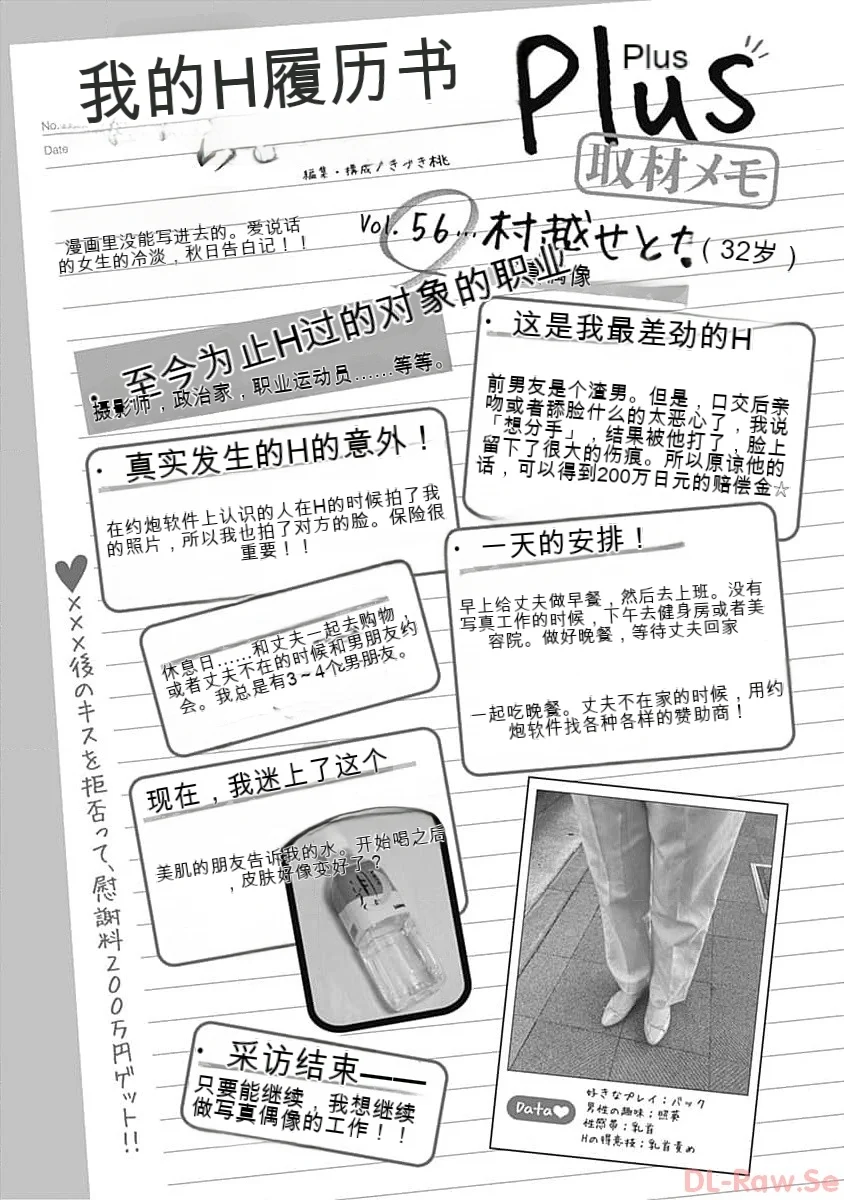 我的H履历书
Plus
Plus
No.
Date
編集・構成/きづき桃
取材メモ
漫画里没能写进去的。爱说话
的女生的冷淡，秋日告白记！！
Vol. 56…村越せとな（32岁）
偶像
・至今为止H过的对象的职业
摄影师，政治家，职业运动员……等等。
・这是我最差劲的H
前男友是个渣男。但是，口交后亲
吻或者舔脸什么的太恶心了，我说
「想分手」，结果被他打了，脸上
留下了很大的伤痕。所以原谅他的
话，可以得到200万日元的赔偿金☆
・真实发生的H的意外！
在约炮软件上认识的人在H的时候拍了我
的照片，所以我也拍了对方的脸。保险很
重要！！
・一天的安排！
早上给丈夫做早餐，然后去上班。没有
写真工作的时候，下午去健身房或者美
容院。做好晚餐，等待丈夫回家
一起吃晚餐。丈夫不在家的时候，用约
炮软件找各种各样的赞助商！
休息日……和丈夫一起去购物，
或者丈夫不在的时候和男朋友约
会。我总是有3～4个男朋友。
♥×××後のキスを拒否って、慰謝料200万円ゲット!!
现在，我迷上了这个
美肌的朋友告诉我的水。开始喝之后
，皮肤好像变好了？
・采访结束——
只要能继续，我想继续
做写真偶像的工作！！
Data♥
好きなプレイ：バック
男性の趣味：照英
性感帯：乳首
Hの得意技：乳首責め
DL-Raw.Se